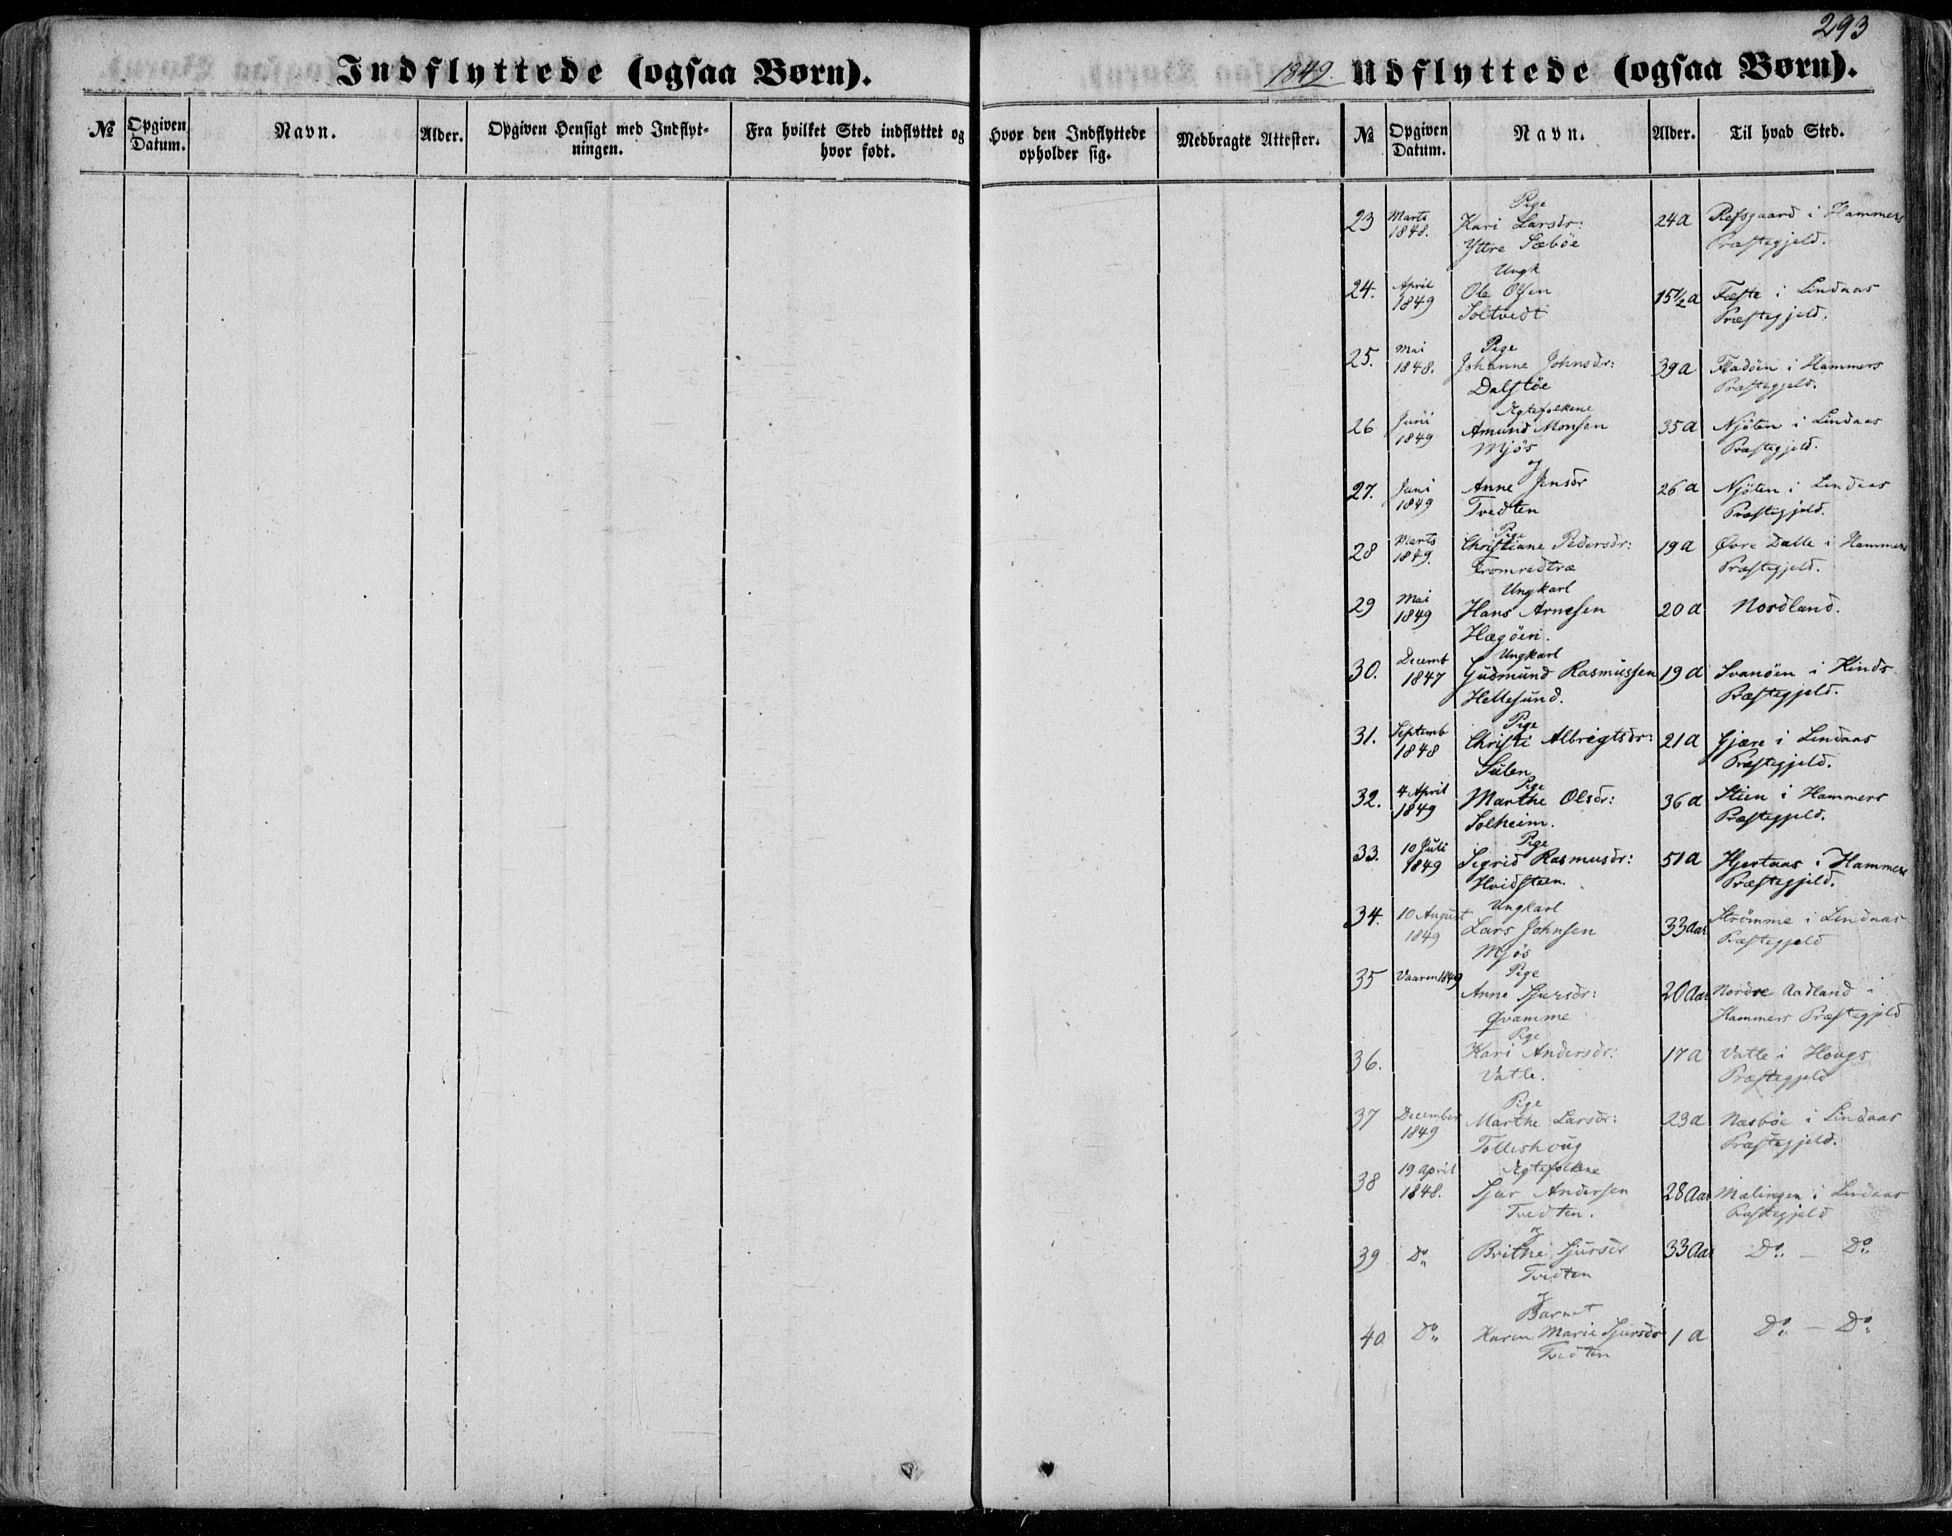 293
Indflyttede (ogsaa Børn).
1849. Udflyttede (ogsaa Børn).
№ Opgiven Datum. Navn. Alder. Opgiven Hensigt med Indflytningen. Fra hvilket Sted indflyttet og hvor født. Hvor den Indflyttede opholder sig. Medbragte Attester. № Opgiven Datum. Navn. Alder. Til hvad Sted.
Pige
23 Marts 1848. Kari Larsdr: 24 a Refsgaard i Hammers
Yttre Sæbøe Præstegjeld.
Ungk
24. April 1849 Ole Olsen 15½ a Fæste i Lindaas
Soltvedt Præstegjeld.
Pige
25. Mai 1848. Johanne Johnsdr: 39 a Fladøen i Hammers
Dalstøe Præstegjeld.
Ægtefolkene
26 Juni 1849 Amund Monsen 35 a Njøten i Lindaas
Mjøs Præstegjeld.
og
27. Juni 1849 Anne Jensdr 26 a Njøten i Lindaas
Tvedten Præstegjeld.
Pige
28 Marts 1849. Christiane Pedersdr: 19 a Øvre Dalle i Hammers
Fromredtræ Præstegjeld.
Ungkarl
29 Mai 1849 Hans Arnesen 20 a Nordland.
Hægøen.
Ungkarl
30. Decemb 1847 Gudmund Rasmussen 19 a Svanøen i Kinds
Hellesund. Præstegjeld.
Pige
31. Septemb 1848 Christi Albrigtsdr: 21 a Gjære i Lindaas
Sulen Præstegjeld.
Pige
32. 4 April 1849 Marthe Olsdr: 36 a Stien i Hammers
Solheim. Præstegjeld.
Pige
33. 10 Juli 1849 Sigrid Rasmusdr: 51 a Hjertaas i Hammers
Hvidsteen. Præstegjeld.
Ungkarl
34. 10 August 1849 Lars Johnsen 33 Aar Strømme i Lindaas
Mjøs Præstegjeld
Pige
35 Vaaren 1849 Anne Sjursdr: 20 Aar Nordre Aadland i
Qvamme Hammers Præstegjeld
Pige
36. Kari Andersdr: 17 a Vatle i Hougs
Vatle. Præstegjeld
Pige
37 December 1849 Marthe Larsdr: 23 a Næsbøe i Lindaas
Tolleshoug Præstegjeld.
Ægtefolkene
38 19 April 1848. Sjur Andersen 28 Aar Mælingen i Lindaas
Tvedten. Præstegjeld
og
39 Do Brithe Sjursdr 33 Aar Do — Do
Tvedten
og
Barnet
40 Do Karen Marie Sjursdr 1 a Do — Do
Tvedten